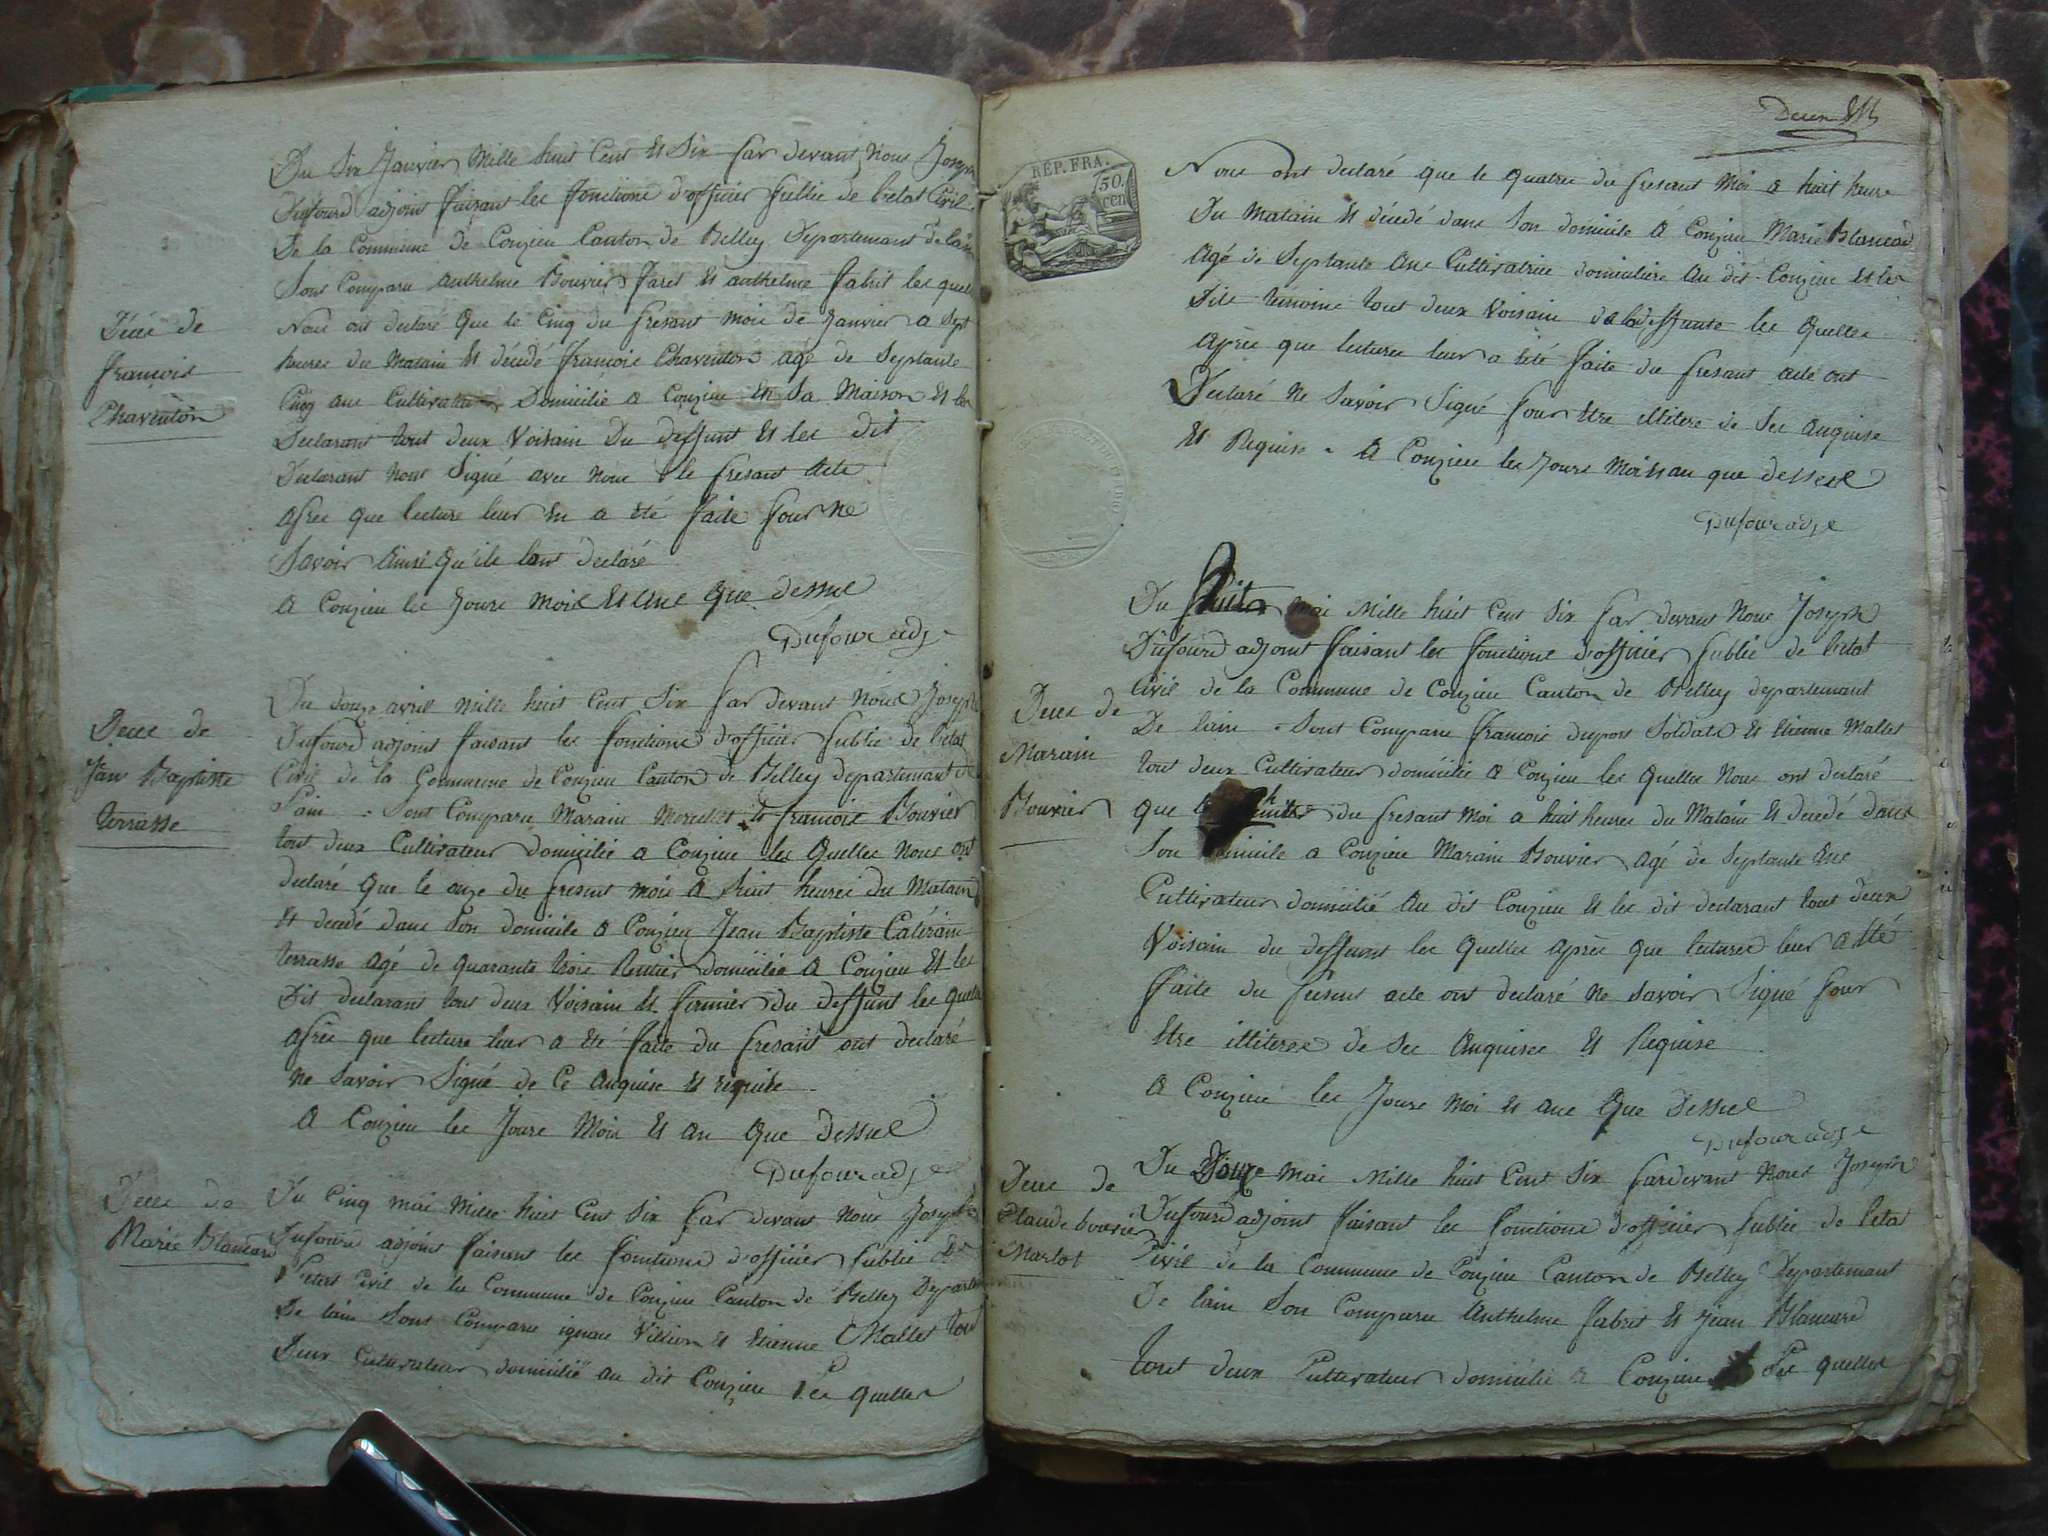 Du Six Janvier Mille huit Cent Et Six par devant Nous Joseph
Dufourd adjoint faisant les fonctions d'officier public de l'etat Civil
De la Commune de Conzieu Canton de Belley Departement de lain
Sont Comparu anthelme Bouvier paret Et anthelme fabrit les quel
Nous ont declaré Que le Cinq du presant mois de Janvier a sept
heures du Matain Et décédé françois Chaventon agé de Septante
Cinq ans Cultivateur Domicilié a Conzieu En Sa Maison Et les
Declarant tout deux Voisain Du deffunt Et les dit
Declarant n'ont Signé avec nous le presant Acte
après que lecture leur En a Eté faite pour ne
Savoir Ainsi Qu'ils l'ont déclaré
A Conzieu les Jours Mois Et Ans Que dessus
Dufour adj.
Décé de
françois
Chaventon
Du douze avril mille huit Cent Six par devant Nous Joseph
Dufourd adjoint faisant les fonctions d'officier public de l'etat
Civil de la Commune de Conzieu Canton de Belley departement de
l'ain - Sont Comparu Marain Mercdet et françois Bouvier
tout deux Cultivateur domicilié a Conzieu les Quelles Nous ont
declaré Que le onze du presant mois a huit heures du Matain
Et decedé dans Son domicile a Conzieu Jean Baptiste Catérain
terrasse agé de quarante trois Rentier domicilié a Conzieu Et les
Dit declarant tout deux Voisain Et fermier du deffunt les quels
après que lecture leur a Eté faite du presant ont declaré
Ne Savoir Signé de Ce Anquise Et requise
A Conzieu les Jours Mois Et An Que Dessus
Dufour adj.
Deces de
Jan Baptiste
terrasse
Du Cinq mai Mille huit Cent Six par devant Nous Joseph
Dufourd adjoint faisant les fonctions d'officier public De
l'etat Civil de la Commune de Conzieu Canton de Belley Departe
De lain Sont Comparu ignace Villion Et Etienne Mallet tout
Deux Cultivateur domicilié au dit Conzieu les quelles
Deces de
Marie Blancard
Deux
RÉP. FRA.
50.
cen
Nous ont declaré que le quatre du presant Moi a huit heure
Du Matain Et décédé dans Son domicile A Conzieu Marie Blancard
Agé de Septante Ans Cultivatrice domicilière Au dit Conzieu Et les
Dits temoins tout deux Voisain de la deffunte les Quelles
Après que lecture leur a Eté faite du presant acte ont
Declaré Ne Savoir Signé pour Etre illitere de Sec Anquise
Et Requise - A Conzieu les Jours Mois Et an que dessus
Dufour adj.
Du huit Mai Mille huit Cent Six par devant Nous Joseph
Dufourd adjoint faisant les fonctions d'officier public de l'etat
Civil de la Commune de Conzieu Canton de Belley departement
De lain - Sont Comparu françois dupont Soldats Et Etienne Mallet
tout deux Cultivateur domicilié a Conzieu les Quelles Nous ont declaré
que le du presant Moi a huit heures du Matain Et decedé dans
Son domicile a Conzieu Marain Bouvier agé de Septante Ans
Cultivateur domicilié Au dit Conzieu Et les dit declarant tout deux
Voisain du deffunt les Quelles Après que lectures leur a Eté
faite du presant acte ont declaré Ne Savoir Signé pour
Etre illiteres de Sec Anquises Et Requise
A Conzieu les Jours Moi Et Ans Que Dessus
Dufour adj.
Deces de
Marain
Bouvier
Du Douze Mai Mille huit Cent Six par devant Nous Joseph
Dufourd adjoint faisant les fonctions d'officier public de l'etat
Civil de la Commune de Conzieu Canton de Belley Departement
De lain Son Comparu Anthelme fabrit Et Jean Blancard
tout deux Cultivateur domicilié a Conzieu Les quelles
Deces de
Claude bouvier
Marlot